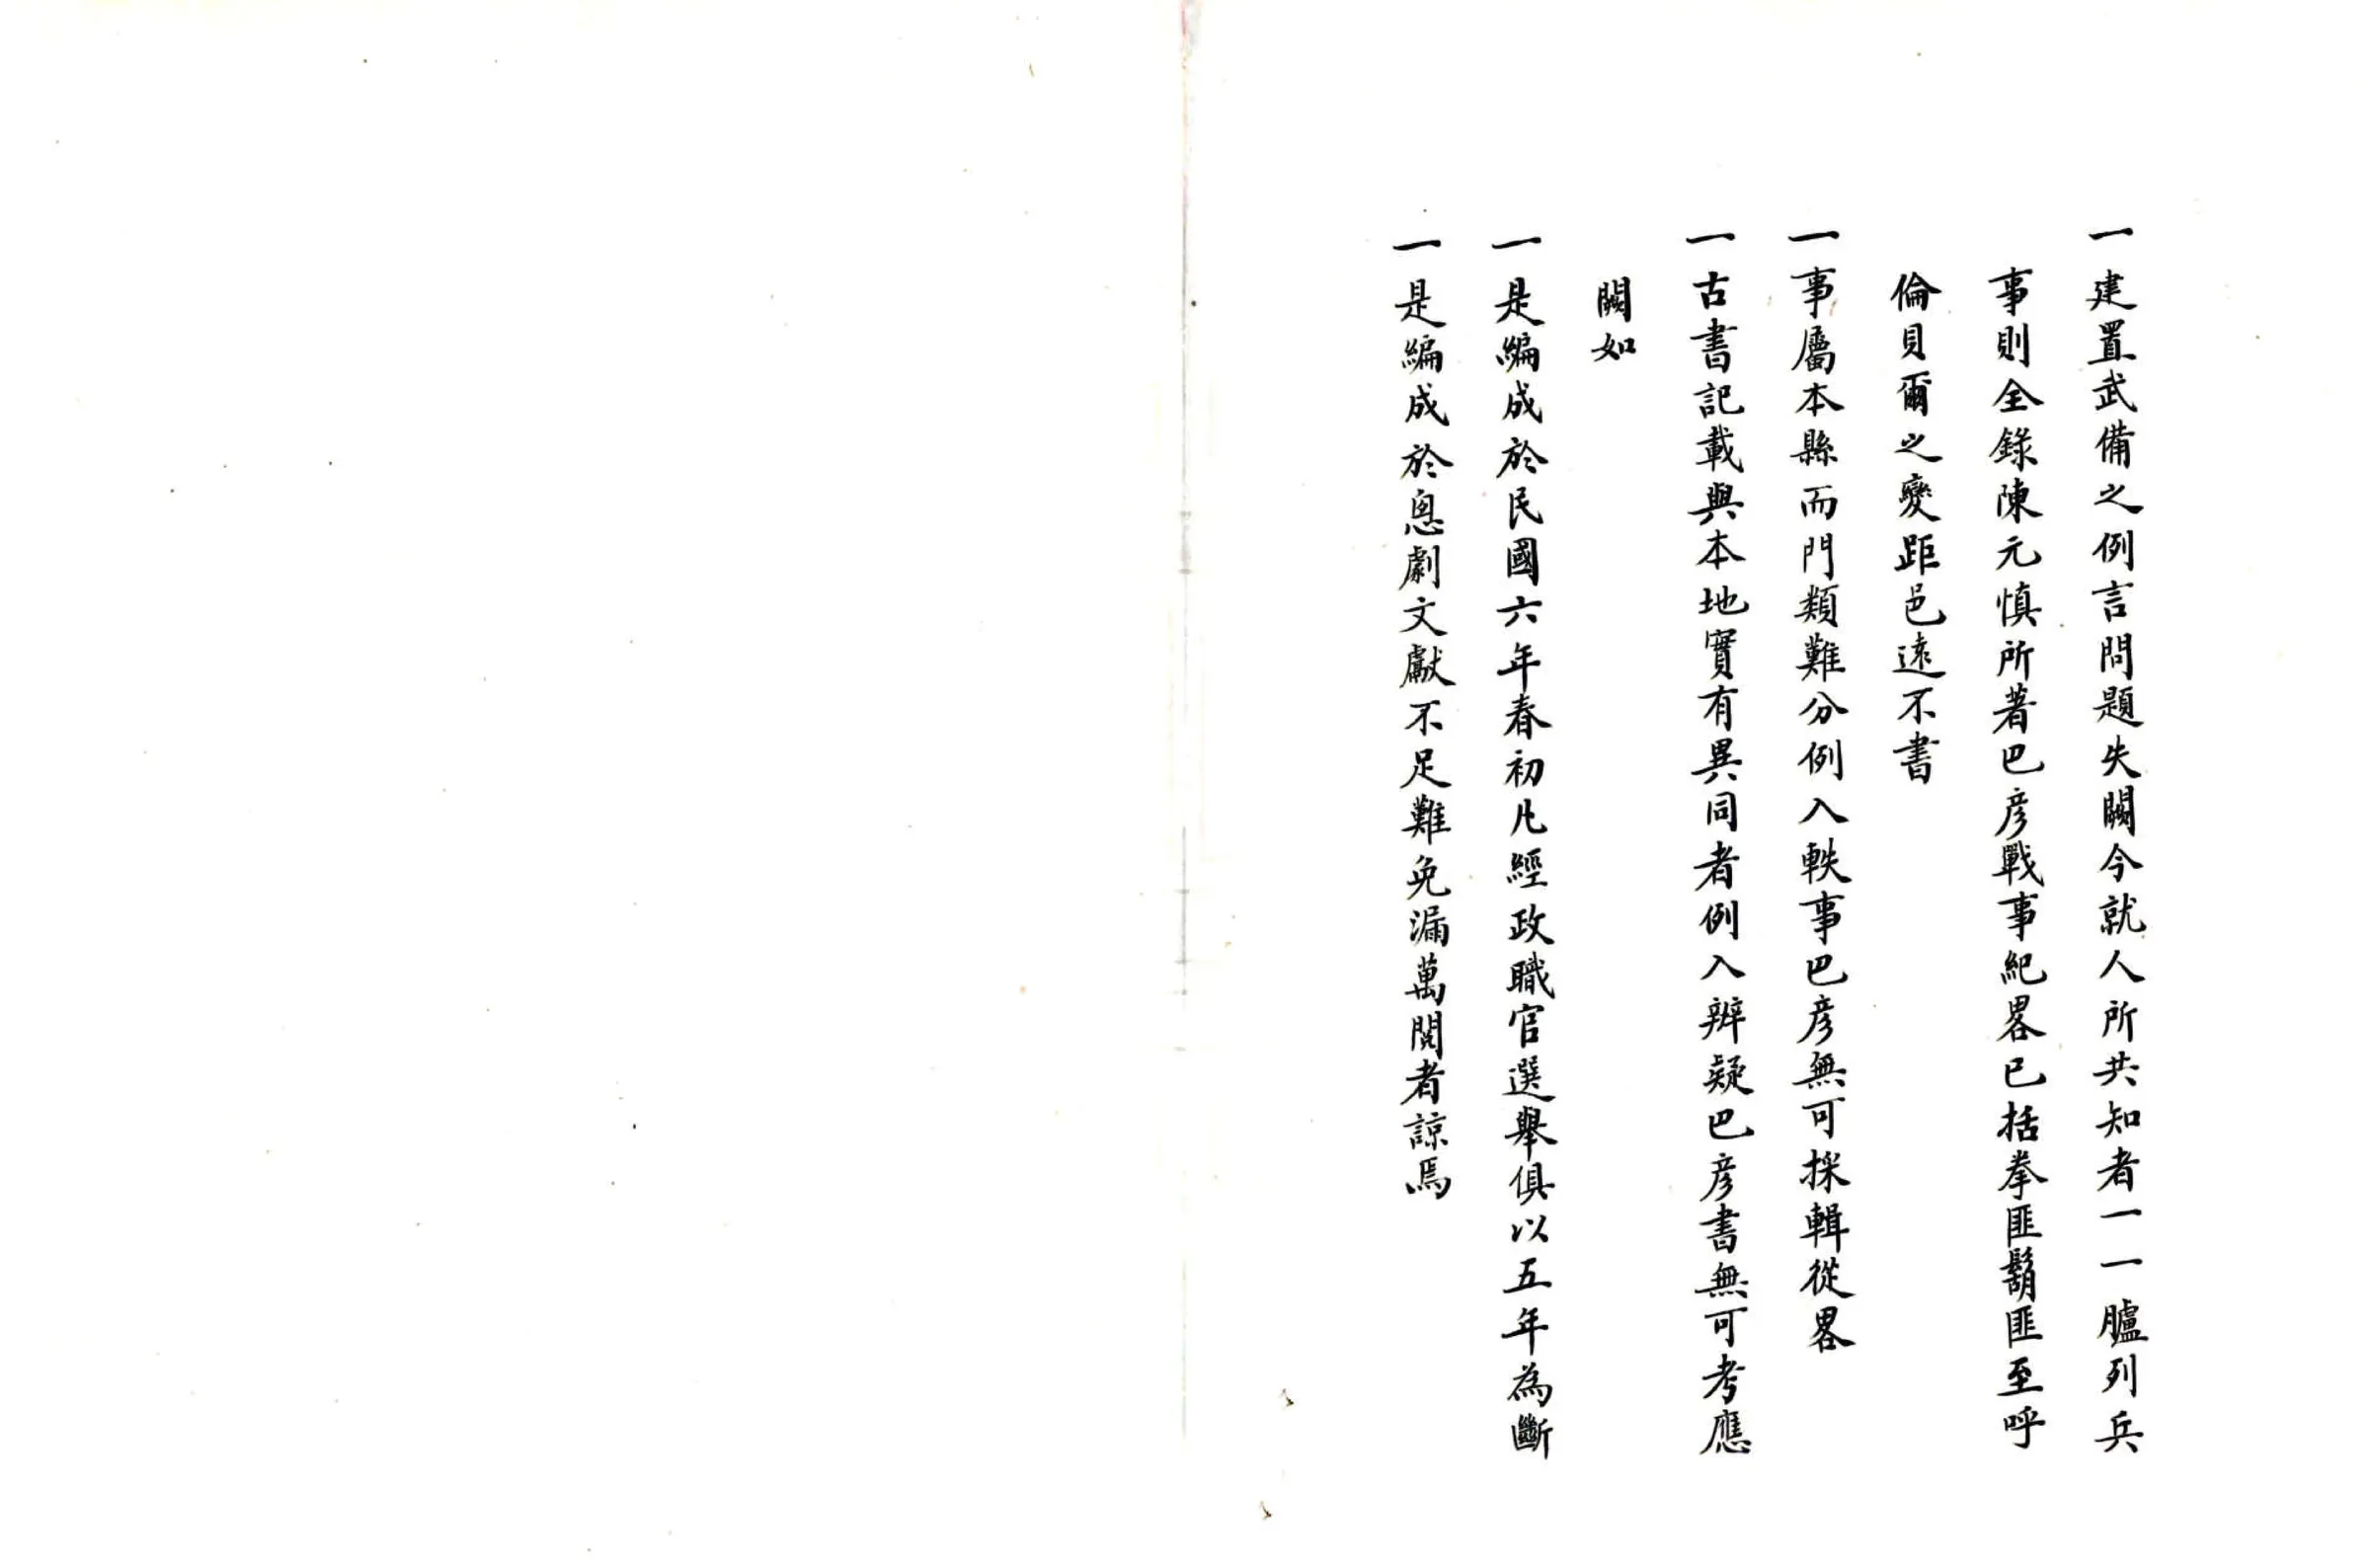 一建置武備之例言問題失闕今就人所共知者一一臚列兵
事則全錄陳元慎所著巴彥戰事紀畧已括拳匪鬍匪至呼
倫貝爾之變距邑遠不書
一事屬本縣而門類難分例入軼事巴彥無可採輯從畧
一古書記載與本地實有異同者例入辨疑巴彥書無可考應
闕如
一是編成於民國六年春初凡經政職官選舉俱以五年為斷
一是編成於恖劇文獻不足難免漏萬閱者諒焉